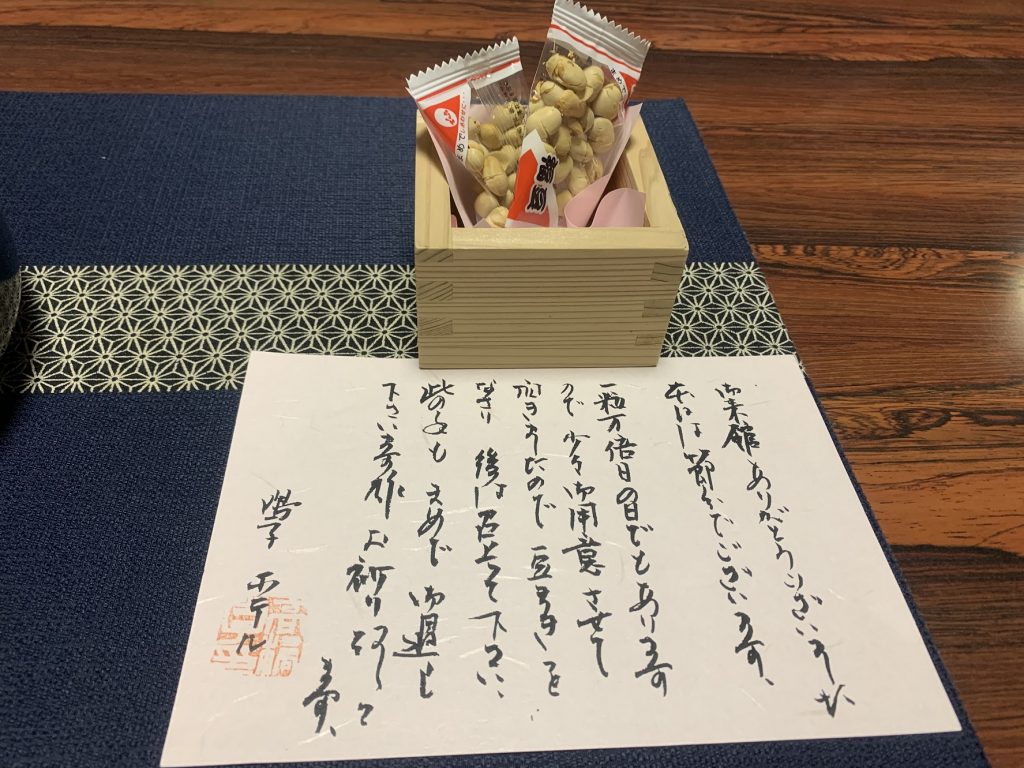 福豆
御来館ありがとうございました
本日は節分でございます、
一粒万倍日の日でもあります
ので少々御用意させて
頂きましたので豆まきを
後は召上って下さい、
えめで御過し
下さいます様お祈り致して
ます、
ホテル